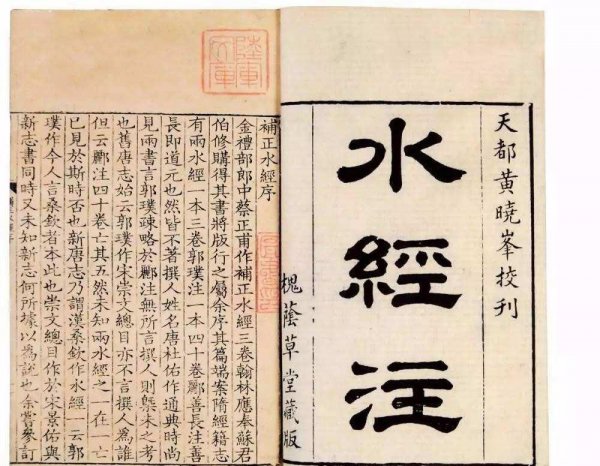 天都黄曉峯挍刊
水經注
槐蔭草堂藏版
陸軍
補正水經序
金禮部郎中蔡正甫作補正水經三卷翰林應奉蘇君
伯修購得其書將版行之屬余序其篇端案隋經籍志
有兩水經一本三卷郭璞注一本四十卷酈善長注善
長即道元也然皆不著撰人姓名唐杜佑作通典時尚
見兩書言郭璞疎略於酈注無所言撰人則槩未之考
也舊唐志始云郭璞作宋崇文總目亦不言撰人為誰
但云酈注四十卷亡其五然未知兩水經之一在一亡
已見於斯時否也新唐志乃謂漢桑欽作水經一云郭
璞作今人言桑欽者本此也崇文總目作於宋景佑與
新志書同時又未知新志何所據以為說也余嘗參訂